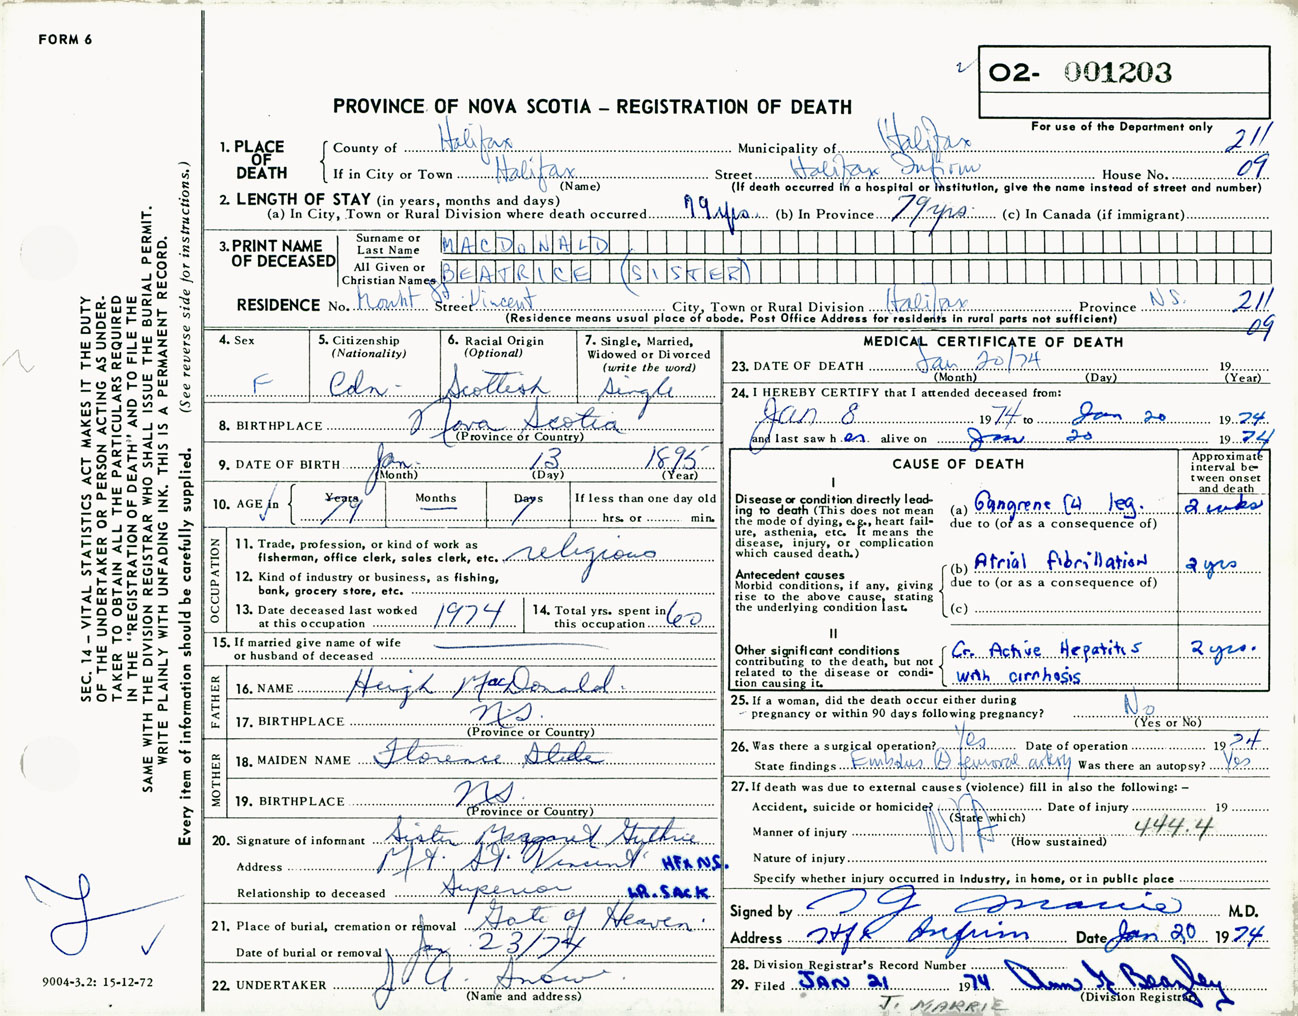 FORM 6
O2- 001203
PROVINCE OF NOVA SCOTIA – REGISTRATION OF DEATH
For use of the Department only
1. PLACE OF DEATH
County of Halifax Municipality of Halifax 211
If in City or Town Halifax Street Halifax Infirm House No. 09
(Name) (If death occurred in a hospital or institution, give the name instead of street and number)
2. LENGTH OF STAY (in years, months and days)
(a) In City, Town or Rural Division where death occurred 79 yrs. (b) In Province 79 yrs. (c) In Canada (if immigrant)
3. PRINT NAME OF DECEASED
Surname or Last Name MACDONALD
All Given or Christian Names BEATRICE (SISTER)
RESIDENCE No. Mount St Street Vincent City, Town or Rural Division Halifax Province N.S. 211
(Residence means usual place of abode. Post Office Address for residents in rural parts not sufficient) 09
4. Sex F
5. Citizenship (Nationality) Cdn-
6. Racial Origin (Optional) Scottish
7. Single, Married, Widowed or Divorced (write the word) Single
8. BIRTHPLACE Nova Scotia
(Province or Country)
9. DATE OF BIRTH Jan. 13 1895
(Month) (Day) (Year)
10. AGE in Years 79 Months Days 7 If less than one day old
hrs. or min.
OCCUPATION
11. Trade, profession, or kind of work as fisherman, office clerk, sales clerk, etc. religious
12. Kind of industry or business, as fishing, bank, grocery store, etc.
13. Date deceased last worked at this occupation 1974
14. Total yrs. spent in this occupation 60
15. If married give name of wife or husband of deceased
FATHER
16. NAME Hugh MacDonald.
17. BIRTHPLACE N.S.
(Province or Country)
MOTHER
18. MAIDEN NAME Florence
19. BIRTHPLACE N.S.
(Province or Country)
20. Signature of informant Sister Margaret Guthrie
Address Mt. St. Vincent HFX N.S.
Relationship to deceased Superior LR. SACK.
21. Place of burial, cremation or removal Gate of Heaven.
Date of burial or removal Jan 23/74
22. UNDERTAKER J. A. Snow
(Name and address)
MEDICAL CERTIFICATE OF DEATH
23. DATE OF DEATH Jan 20/74 19
(Month) (Day) (Year)
24. I HEREBY CERTIFY that I attended deceased from:
Jan 8 1974 to Jan 20 1974
and last saw h er alive on Jan 20 1974
CAUSE OF DEATH
Approximate interval between onset and death
I
Disease or condition directly leading to death (This does not mean the mode of dying, e.g., heart failure, asthenia, etc. It means the disease, injury, or complication which caused death.)
(a) Gangrene leg. 2 wks
due to (or as a consequence of)
Antecedent causes
Morbid conditions, if any, giving rise to the above cause, stating the underlying condition last.
(b) Atrial fibrillation 2 yrs
due to (or as a consequence of)
(c)
II
Other significant conditions contributing to the death, but not related to the disease or condition causing it.
Cr. Active Hepatitis 2 yrs.
with cirrhosis
25. If a woman, did the death occur either during pregnancy or within 90 days following pregnancy? No
(Yes or No)
26. Was there a surgical operation? Yes Date of operation 1974
State findings Embolus femoral artery Was there an autopsy? Yes
27. If death was due to external causes (violence) fill in also the following: –
Accident, suicide or homicide? N/A Date of injury 19
(State which)
Manner of injury 444.4
(How sustained)
Nature of injury
Specify whether injury occurred in Industry, in home, or in public place
Signed by M.D.
Address Hfx Infirm Date Jan 20 1974
28. Division Registrar's Record Number
29. Filed JAN 21 1974 Beazley
(Division Registrar)
J. MARRIE
SEC. 14 – VITAL STATISTICS ACT MAKES IT THE DUTY
OF THE UNDERTAKER OR PERSON ACTING AS UNDER-
TAKER TO OBTAIN ALL THE PARTICULARS REQUIRED
IN THE "REGISTRATION OF DEATH" AND TO FILE THE
SAME WITH THE DIVISION REGISTRAR WHO SHALL ISSUE THE BURIAL PERMIT.
WRITE PLAINLY WITH UNFADING INK. THIS IS A PERMANENT RECORD.
Every item of information should be carefully supplied. (See reverse side for instructions.)
9004-3.2: 15-12-72